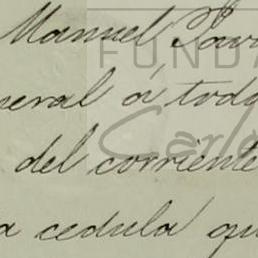 Manuel Pav
FUNDA
neral á toda
Carlo
del corriente
a cedula qu